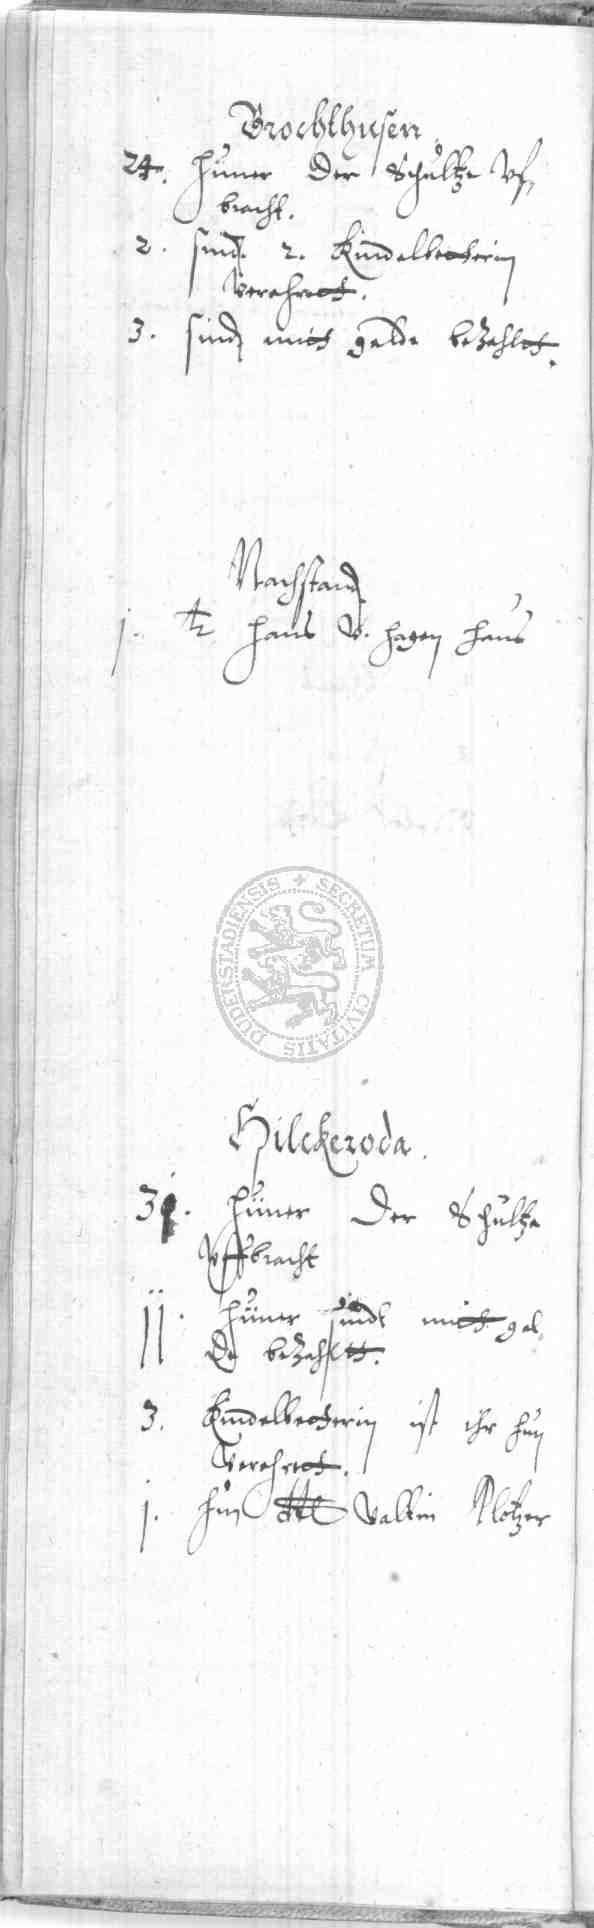 Brochthusen.
24. hüner der Schultze vf,
bracht.
2. sind 2. Kindelbetterin
verehrett.
3. sind mitt gelde bezahltt.
Nachstand
j. hans v. hagen haus
SECRETUM CIVITATIS DUDERSTADIENSIS
Hilckeroda.
3j. hüner der Schultze
vffbracht
jj. hüner sindt mitt gel,
de bezahltt.
3. Kindelbetterin ist ihr hun
verehrett.
j. hun Valtin Klötzer